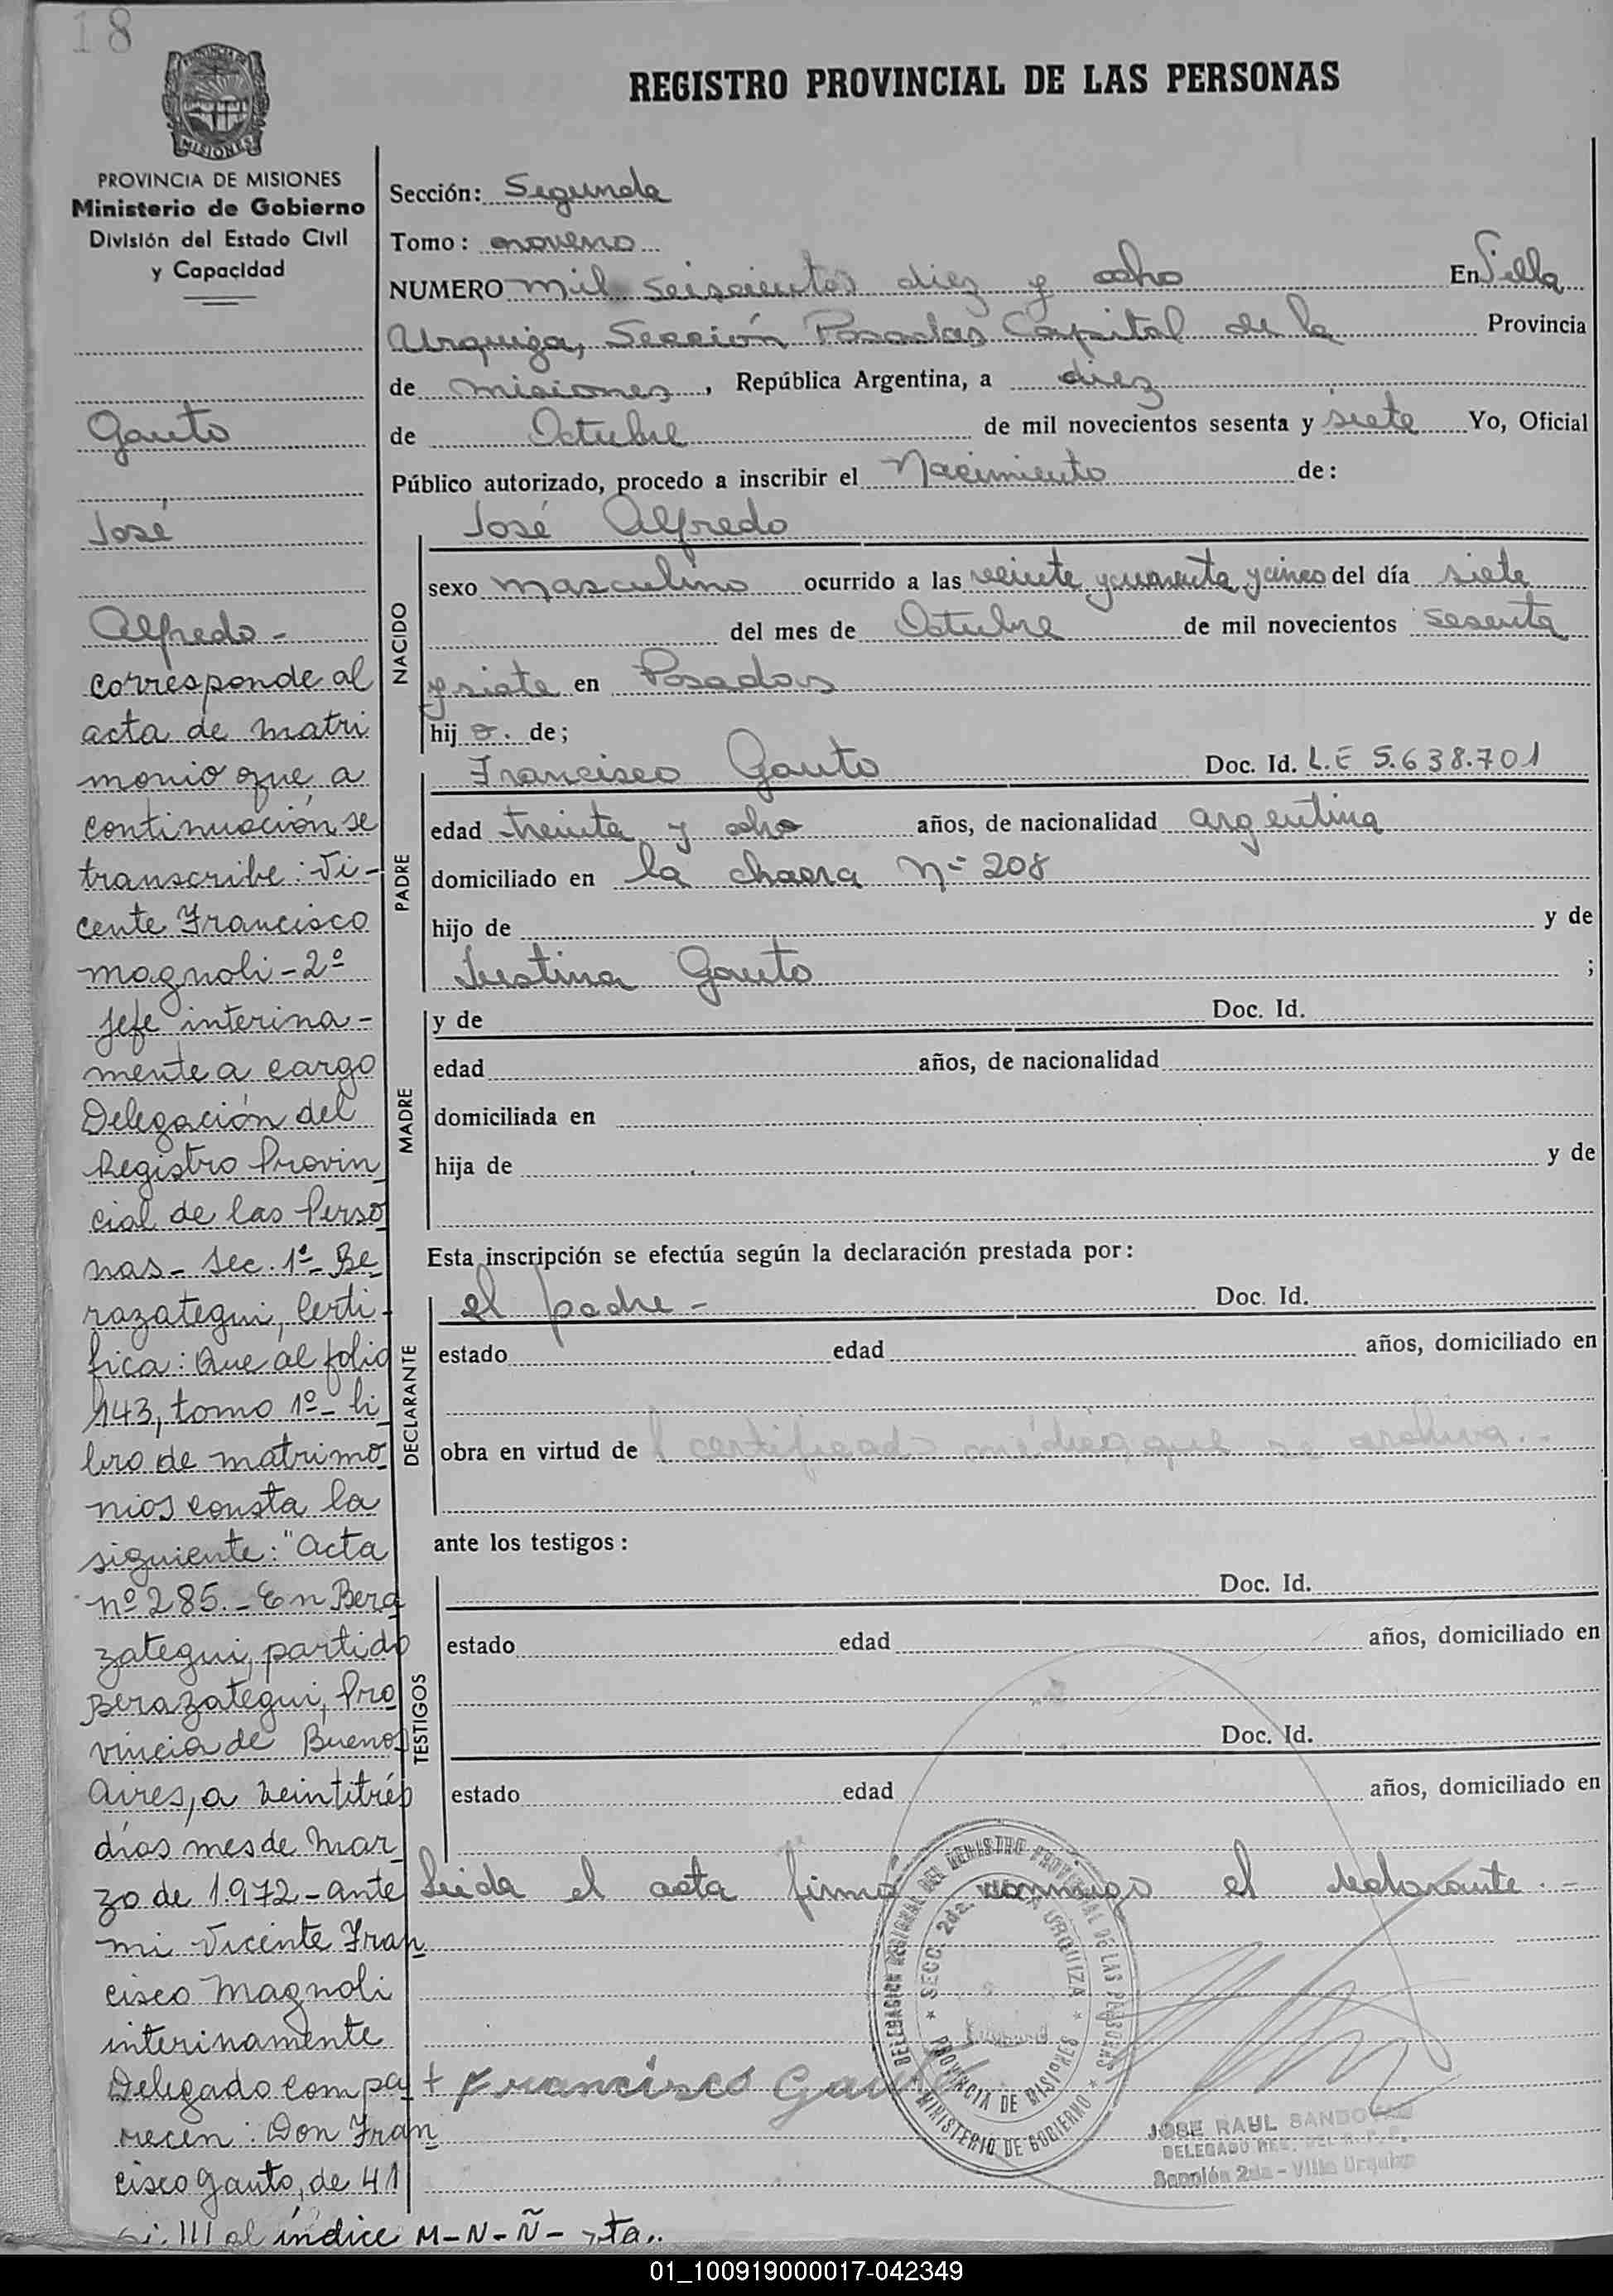 18
REGISTRO PROVINCIAL DE LAS PERSONAS
MISIONES
PROVINCIA DE MISIONES
Ministerio de Gobierno
División del Estado Civil
y Capacidad
Gauto
José
Alfredo -
corresponde al
acta de matri
monio que a
continuación se
transcribe: Vi-
cente Francisco
Magnoli - 2º
Jefe interina-
mente a cargo
Delegación del
Registro Provin
cial de las Perso
nas - Sec. 1ª - Be
razategui, Certi-
fica: Que al folio
143, tomo 1º - li
bro de matrimo
nios consta la
siguiente: "Acta
nº 285. - En Bera
zategui, partido
Berazategui, Pro
vincia de Buenos
Aires, a veintitrés
días mes de Mar
zo de 1.972 - ante
mi Vicente Fran
cisco Magnoli
interinamente
Delegado compa
recen: Don Fran
cisco Gauto, de 41
Sección: Segunda
Tomo: noveno
NUMERO mil seiscientos diez y ocho En Villa
Urquiza, Sección Posadas Capital de la Provincia
de Misiones, República Argentina, a diez
de Octubre de mil novecientos sesenta y siete Yo, Oficial
Público autorizado, procedo a inscribir el Nacimiento de:
José Alfredo
NACIDO
sexo masculino ocurrido a las veinte y cuarenta y cinco del día siete
del mes de Octubre de mil novecientos sesenta
y siete en Posadas
hij o. de;
PADRE
Francisco Gauto Doc. Id. L.E 5.638.701
edad treinta y ocho años, de nacionalidad argentina
domiciliado en la chacra Nº 208
hijo de y de
Justina Gauto ;
MADRE
y de Doc. Id.
edad años, de nacionalidad
domiciliada en
hija de y de
Esta inscripción se efectúa según la declaración prestada por:
DECLARANTE
el padre - Doc. Id.
estado edad años, domiciliado en
obra en virtud de l certificado médico que se archiva. -
ante los testigos:
TESTIGOS
Doc. Id.
estado edad años, domiciliado en
Doc. Id.
estado edad años, domiciliado en
Leida el acta firma conmigo el declarante. -
DELEGACION REGIONAL DEL REGISTRO PROVINCIAL DE LAS PERSONAS
SECC. 2da. VILLA URQUIZA
PROVINCIA DE MISIONES
MINISTERIO DE GOBIERNO
+ Francisco Gauto
JOSE RAUL SANDOVAL
DELEGADO REG. DEL R. P. P.
Sección 2da - Villa Urquiza
al índice M-N-Ñ-
01_100919000017-042349